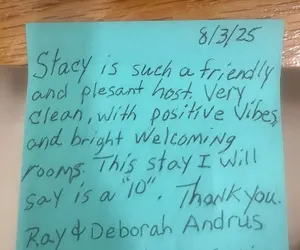 8/3/25
Stacy is such a friendly
and plesant host. Very
clean, with positive Vibes,
and bright Welcoming
rooms. This stay I will
say is a "10". Thank you.
Ray & Deborah Andrus